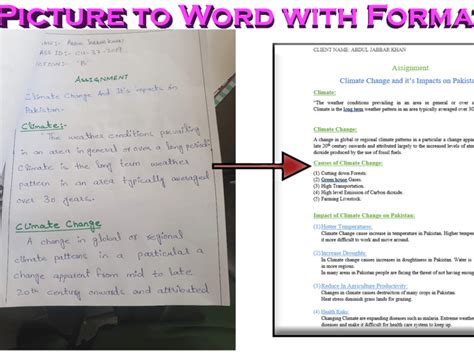 PICTURE TO WORD WITH FORMA
ASSIGNMENT
Climate Change And It's impacts on
Pakistan.
Climate:-
"The weather conditions prevailing
in an area in general or over a long period
Climate is the long term weather
pattern in an area typically averaged
over 30 years.
Climate Change
A change in global or regional
climate patterns in a particular a
change apparent from mid to late
20th century onwards and attributed
CLIENT NAME: ABDUL JABBAR KHAN
Assignment
Climate Change and it's Impacts on Pakista
Climate:
"The weather conditions prevailing in an area in general or over
Climate is the long term weather pattern in an area typically averaged over 30
Climate Change:
A change in global or regional climate patterns in a particular a change appare
late 20th century onwards and attributed largely to the increased levels of atmo
dioxide produced by the use of fossil fuels.
Causes of Climate Change:
(1) Cutting down Forests.
(2) Green house Gases.
(3) High Transportation.
(4) High level Emission of Carbon dioxide.
(5) Farming Livestock.
Impact of Climate Change on Pakistan:
(1) Hotter Temperatures:
Climate Change cause increase in temperature in Pakistan. Higher temper
it more difficult to work and move around.
(2) Increase Droughts:
In Climate change causes increases in droughtness in Pakistan. Water is
in more regions.
In many areas in Pakistan people are facing the threat of not having enoug
(3) Reduce In Agriculture Productivity:
Changes in climate causes reduction of destruction of many crops in Pakistan.
Heat stress grass mint lands for grazing.
(4) Health Risks:
Changing Climate are expanding diseases such as malaria. Extreme weathe
diseases and make it difficult for health care system to keep up.